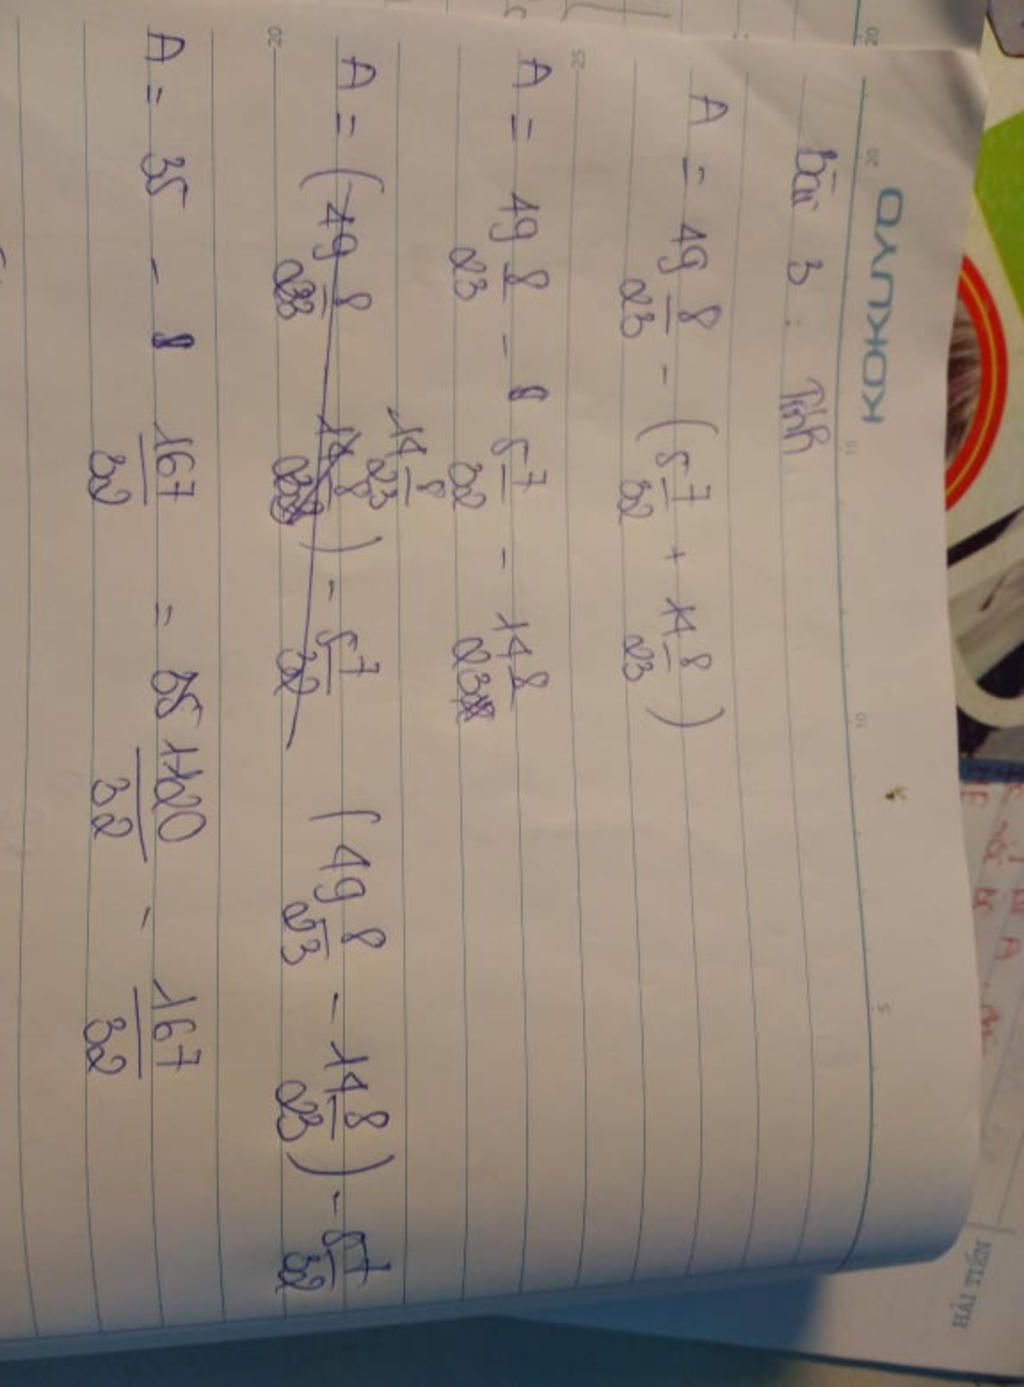 KOKUYO
bài 3 : Tính
A = 49 8/23 - ( 5 7/32 + 14 8/23 )
A = 49 8/23 - 5 7/32 - 14 8/23
14 8/23
A = ( 49 8/23 14 8/23 ) - 5 7/32 ( 49 8/23 - 14 8/23 ) - 5 7/32
A = 35 - 167/32 = 1120/32 - 167/32
HẢI TIẾN